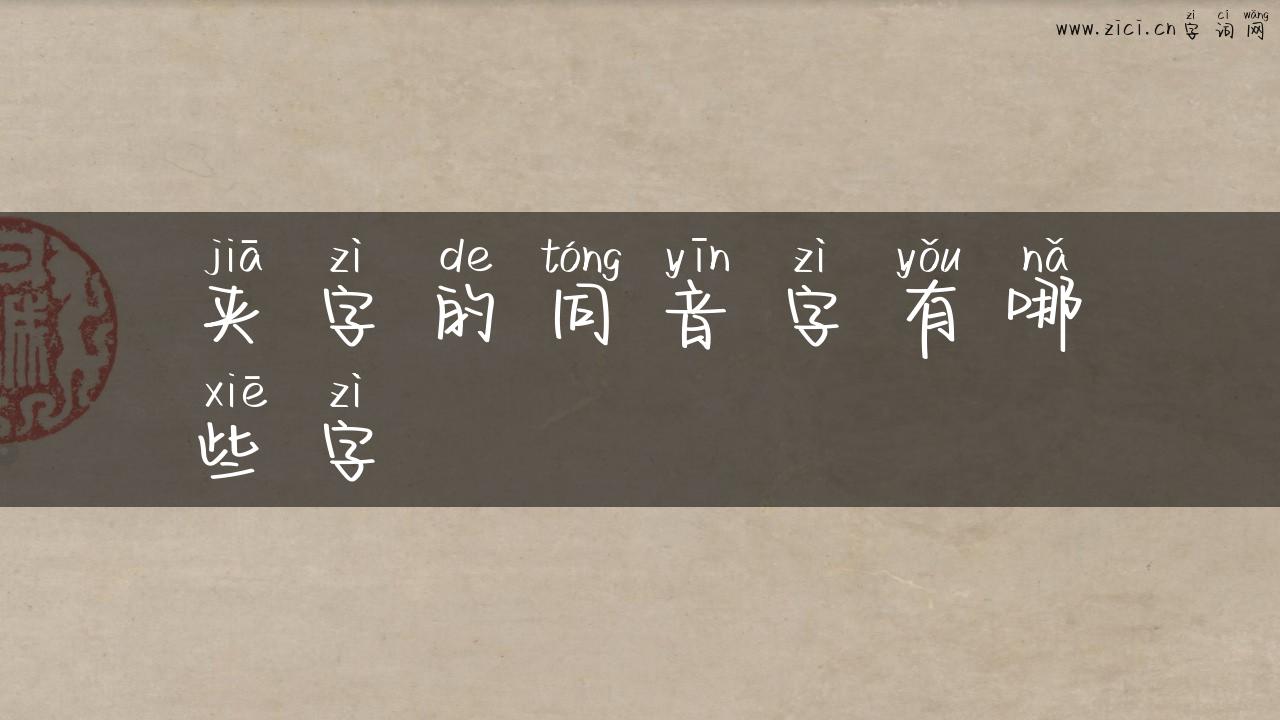 zì cí wǎng
www.zici.cn 字 词 网
jiā zì de tóng yīn zì yǒu nǎ
夹 字 的 同 音 字 有 哪
xiē zì
些 字